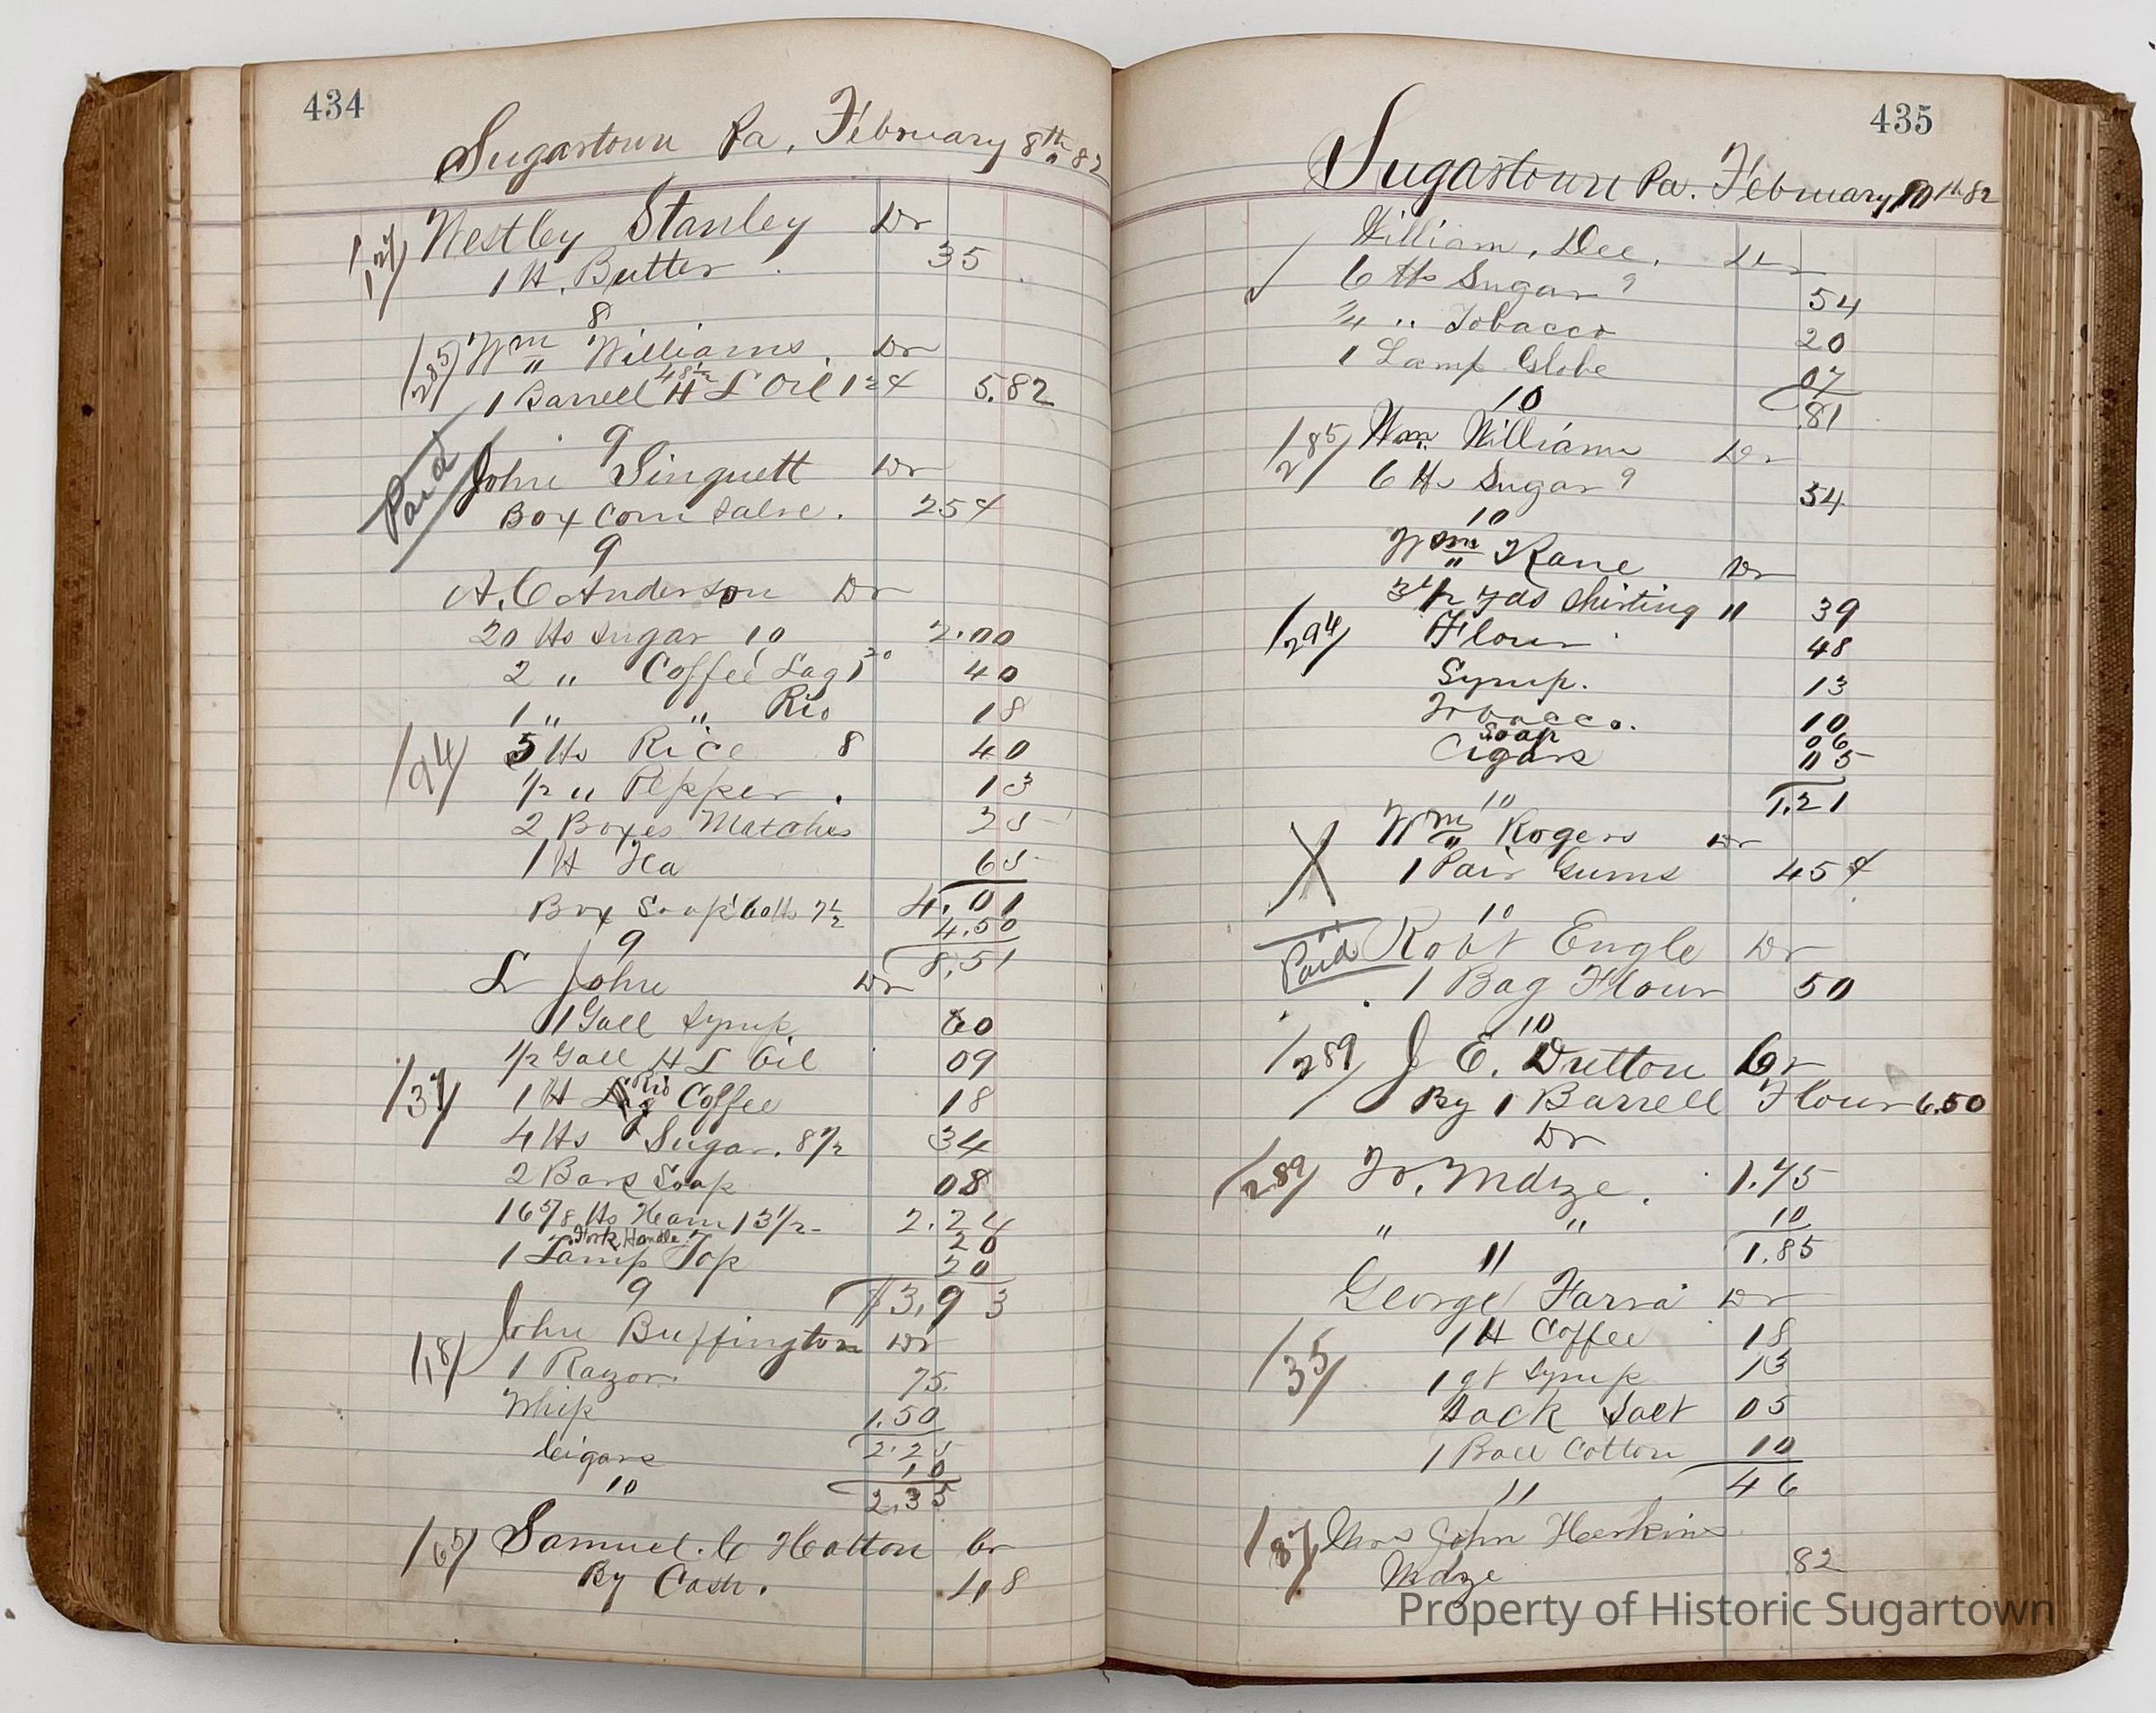 434
Sugartown Pa, February 8th 82
127 Westley Stanley Dr
1 lb. Butter 35
8
285 Wm Williams. Dr
1 Barrell 48½ H L Oil 12¢ 5.82
9
Paid John Singuett Dr
Box Corn Salve. 25¢
9
A. C Anderson Dr
20 lbs Sugar 10 2.00
2 " Coffee Lag 20 40
1 " " Rio 18
194 5 lbs Rice 8 40
1/2 " Pepper 13
2 Boxes Matches 25
1 lb Tea 65
4.01
Box Soap 60 lbs 7½ 4.50
8.51
9
L John Dr
1 Gall Syrup 60
1/2 Gall H L Oil 09
137 1 lb Rio Coffee 18
4 lbs Sugar. 8½ 34
2 Bars Soap 08
16 5/8 lbs Ham 13 1/2 2.24
Fork Handle 20
1 Lamp Top 20
$3,93
9
John Buffington Dr
118 1 Razor 75
Whip 1.50
2.25
Cigars 10
2.35
10
165 Samuel. C Hatton Cr
By Cash. 48
435
Sugartown Pa. February 10th 82
William, Dee, Dr
6 lbs Sugar 9 54
1/4 " Tobacco 20
1 Lamp Globe 07
.81
10
285 Wm Williams Dr
6 lbs Sugar 9 54
10
Wm Kane Dr
3 1/2 yds Shirting 11 39
294 Flour 48
Syrup. 13
Tobacco. 10
Soap 06
Cigars 05
1.21
10
Wm Rogers Dr
X 1 Pair Gums 45¢
10
Paid Robt Engle Dr
1 Bag Flour 50
10
289 J E. Dutton Cr
By 1 Barrell Flour 6.50
Dr
289 To. Mdze. 1.75
" " 10
1.85
11
George Farra Dr
1 lb Coffee 18
135 1 qt Syrup 13
Sack Salt 05
1 Ball Cotton 10
46
11
187 Mrs John Hoskins
Mdze 82
Property of Historic Sugartown